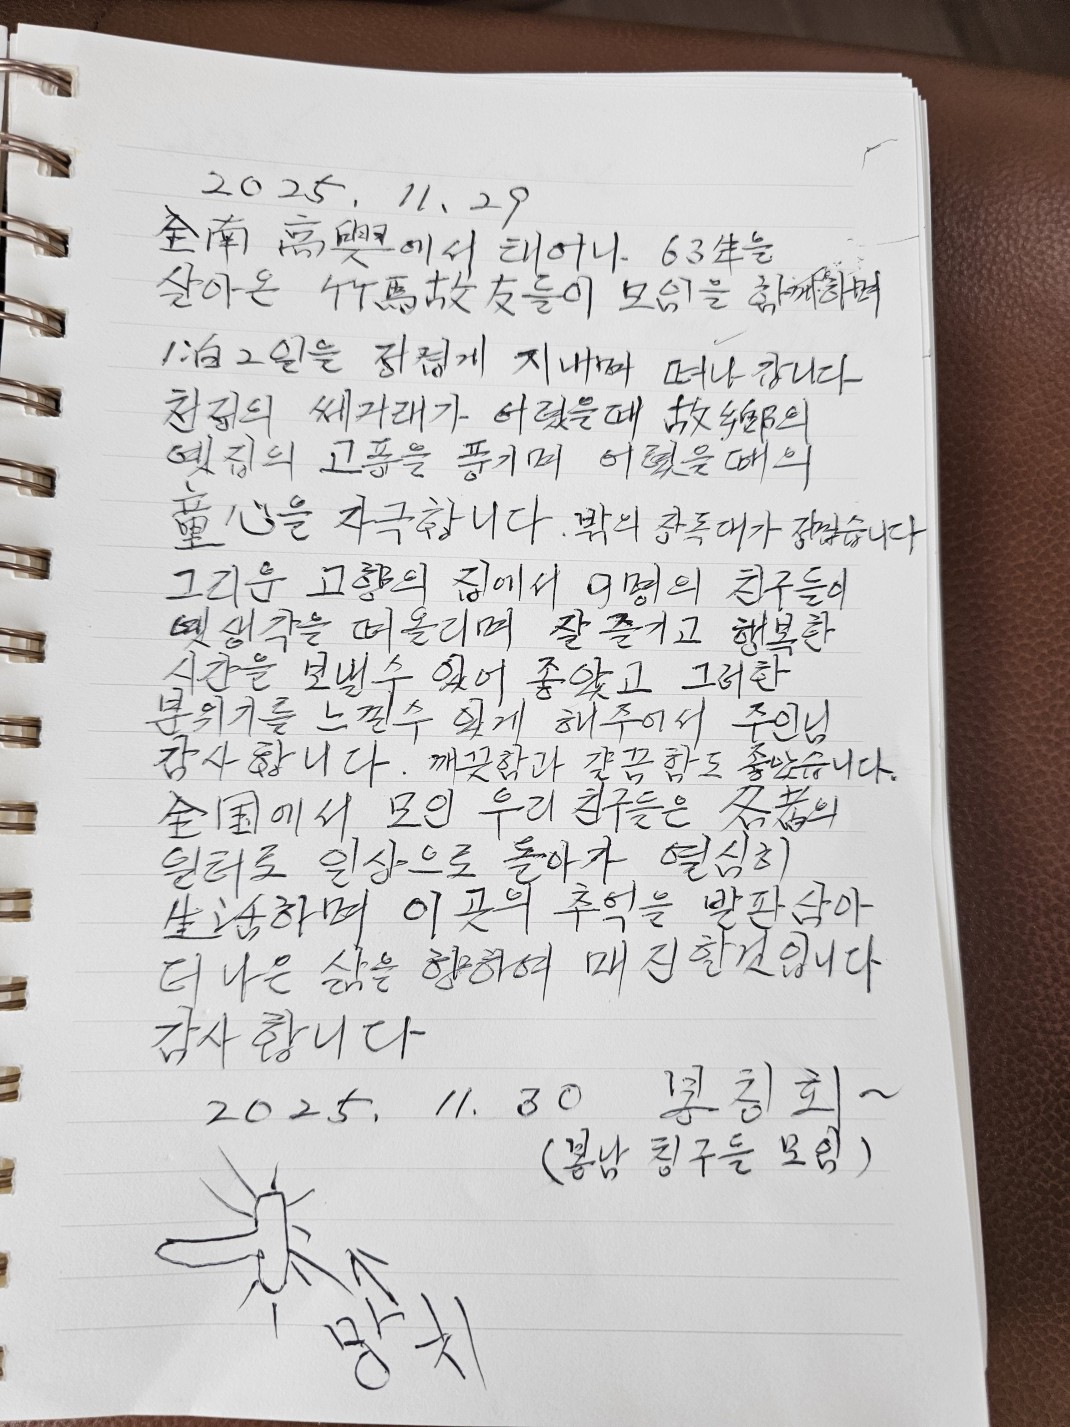 2025. 11. 29
全南 高興에서 태어나 63年을
살아온 竹馬故友들이 모임을 함께하며
1泊2일을 정겹게 지내며 떠나 갑니다
천정의 쎄가래가 어렸을때 故鄕의
옛집의 고풍을 풍기며 어렸을때의
童心을 자극합니다. 밖의 장독대가 정겹습니다
그리운 고향의 집에서 9명의 친구들이
옛생각을 떠올리며 잘 즐기고 행복한
시간을 보낼수 있어 좋았고 그러한
분위기를 느낄수 있게 해주어서 주인님
감사 합니다. 깨끗함과 깔끔함도 좋았습니다.
全国에서 모인 우리 친구들은 各者의
일터로 일상으로 돌아가 열심히
生活하며 이곳의 추억을 발판삼아
더 나은 삶을 향하여 매진할것입니다
감사 합니다
2025. 11. 30 봉친회~
(봉남 친구들 모임)
망치